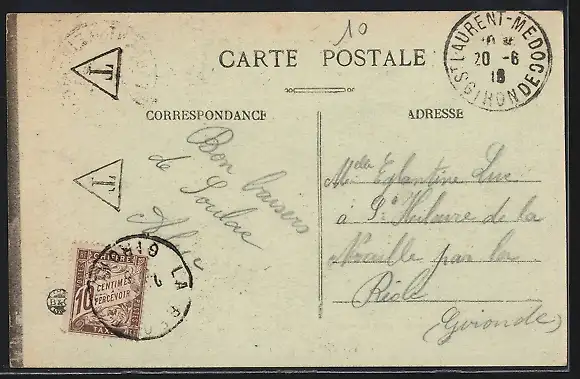 10
CARTE POSTALE
ST LAURENT-MEDOC
20 -6
18
GIRONDE
T
T
CORRESPONDANCE
ADRESSE
Bon baisers
de Soulac
Mlle Eglantine Luc
à St Hilaire de la
Noaille par la
Réole
(Gironde)
CHIFFRE
10
CENTIMES
À
PERCEVOIR
TAXE
LA RÉO
GIRONDE
B&K